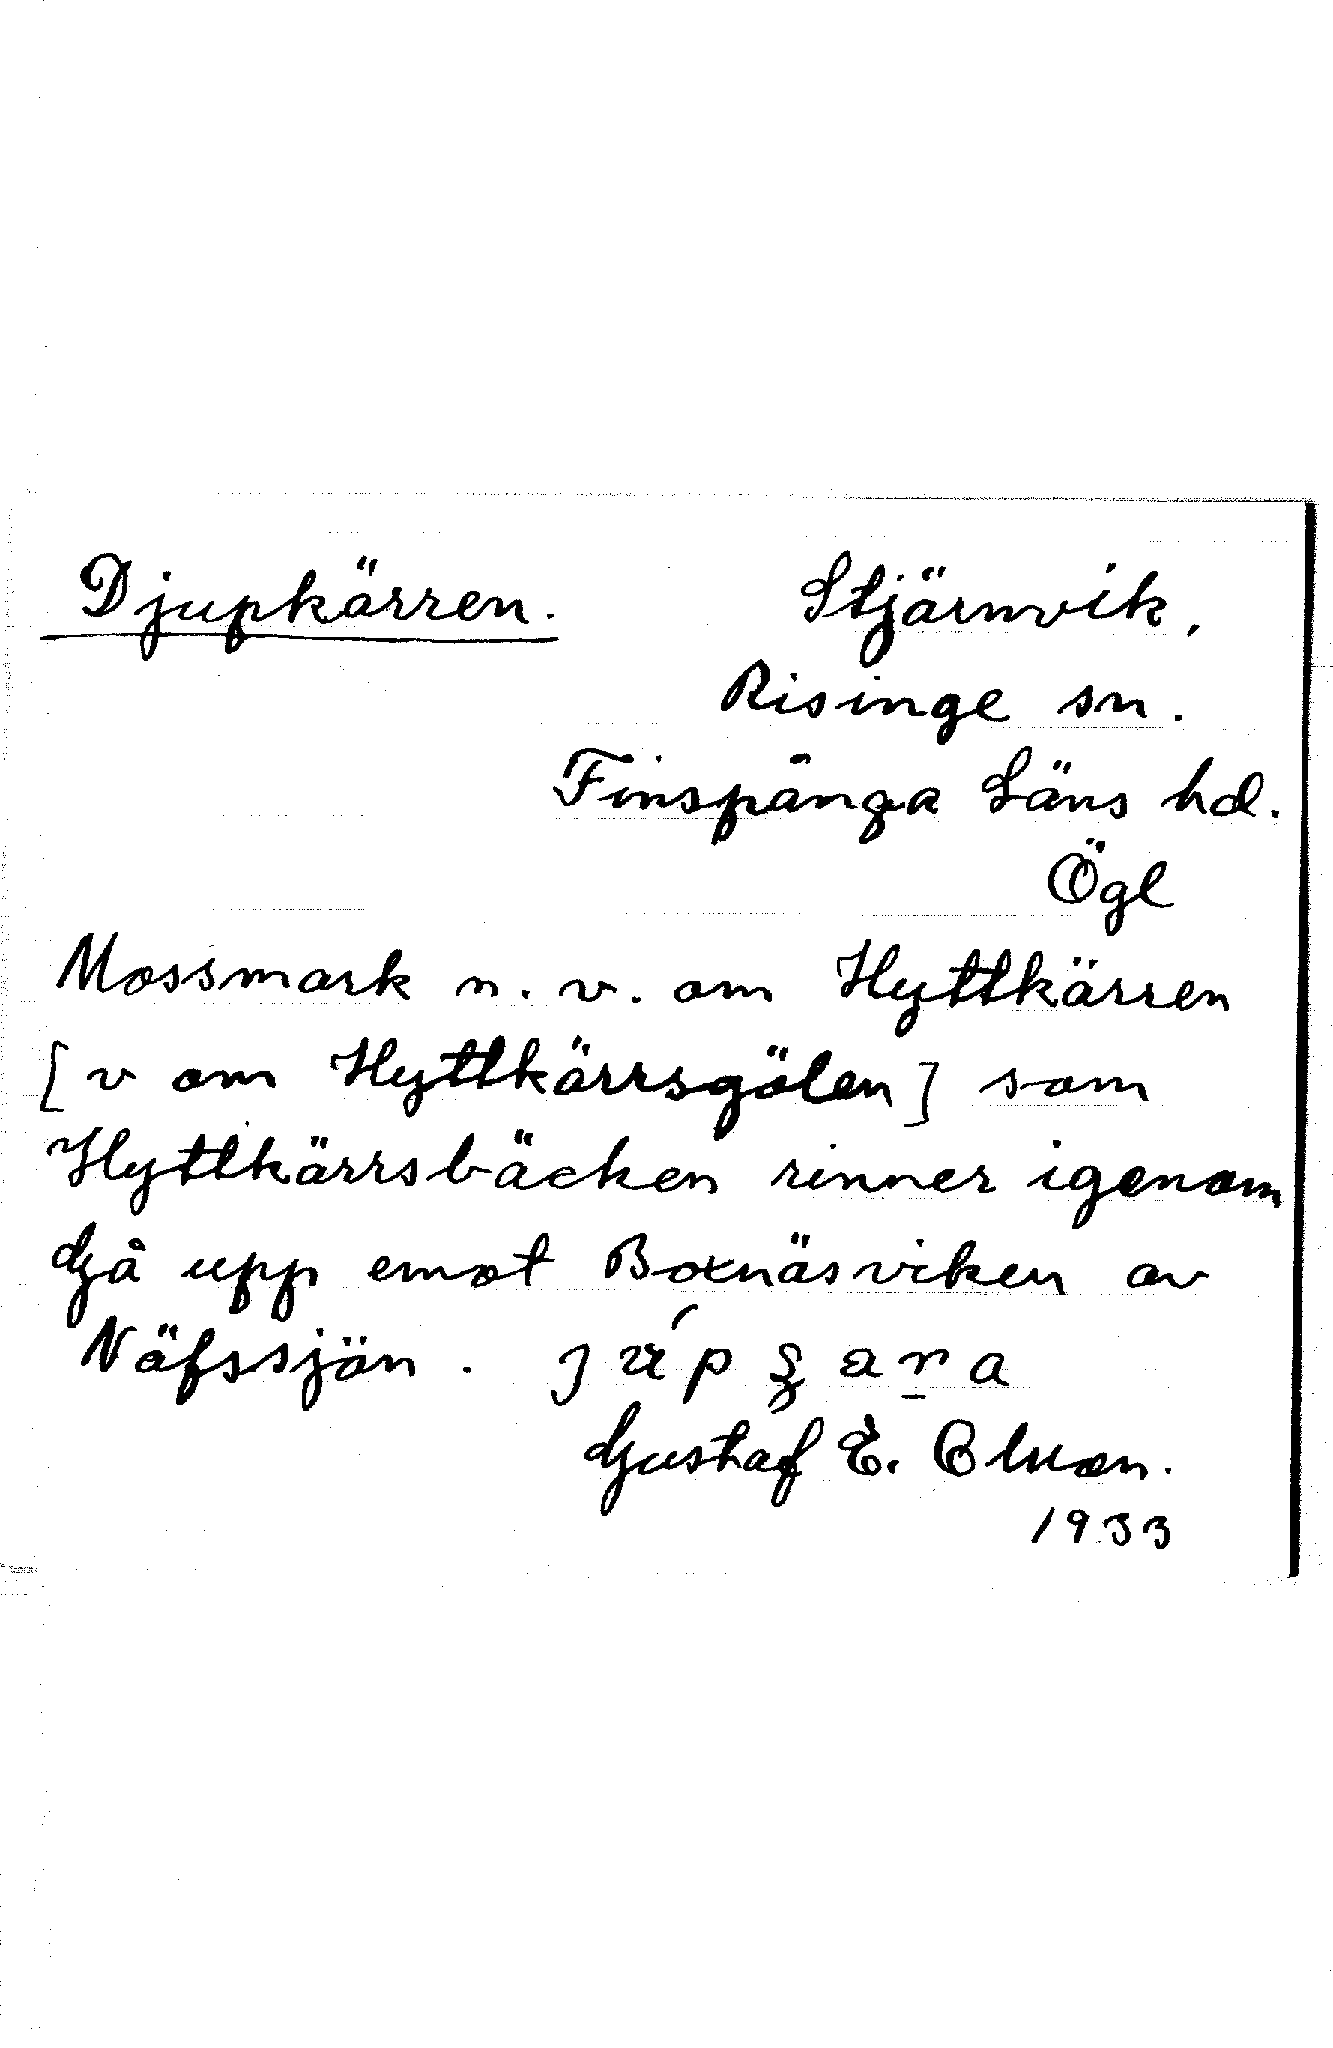 Djupkärren. Stjärnvik,
Risinge sn.
Finspånga Läns hd.
Ögl
Mossmark n. v. om Hyttkärren
[v om Hyttkärrsgölen] som
Hyttkärrsbäcken rinner igenom
Gå upp emot Boxnäsviken av
Näfssjön.
Gustaf E.
1933